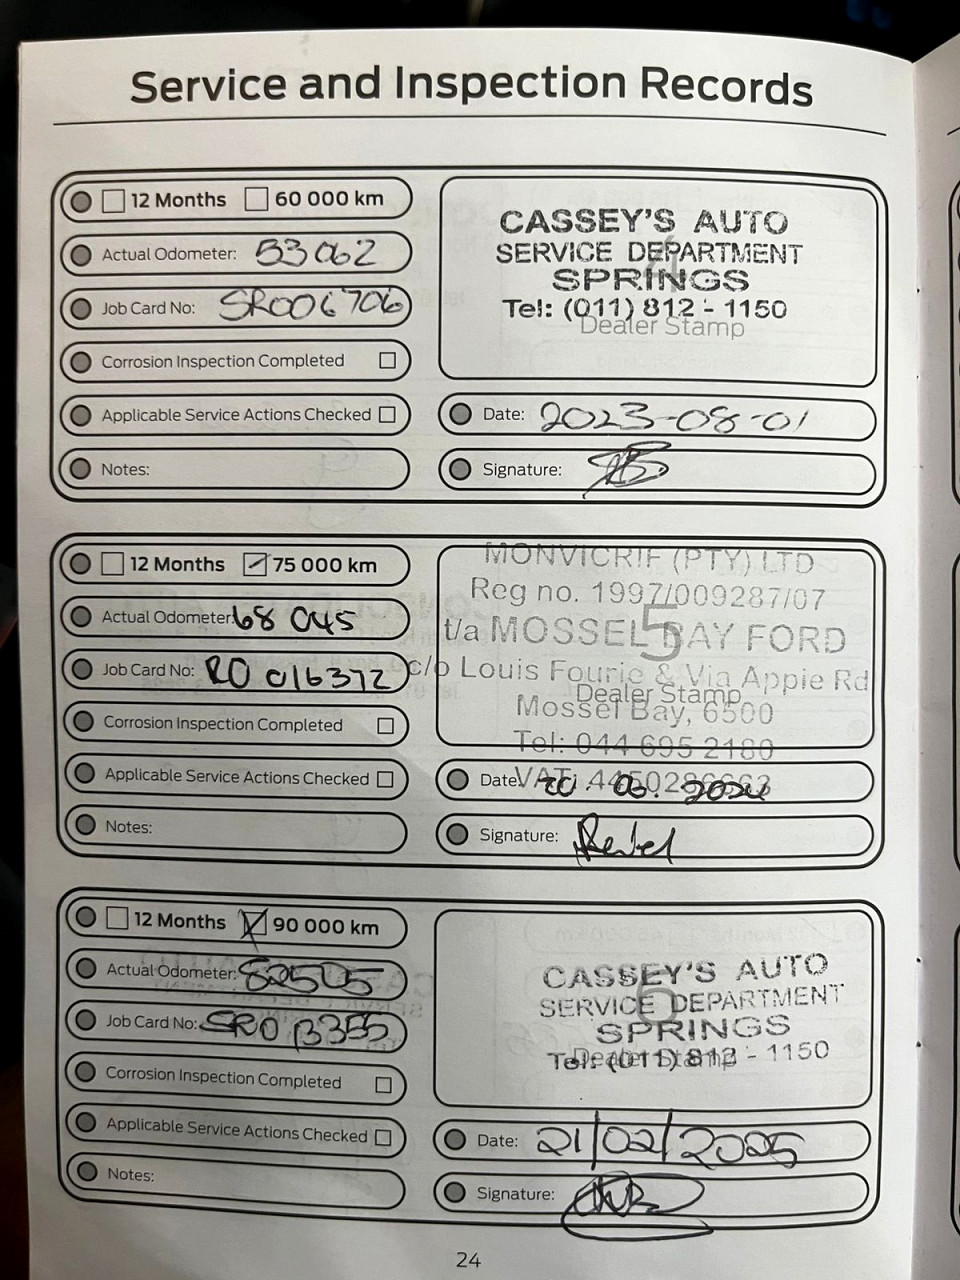 Service and Inspection Records
12 Months 60 000 km
Actual Odometer: 53062
Job Card No: SR006706
Corrosion Inspection Completed
Applicable Service Actions Checked
Notes:
CASSEY'S AUTO
SERVICE DEPARTMENT
4
SPRINGS
Tel: (011) 812 - 1150
Dealer Stamp
Date: 2023-08-01
Signature:
12 Months 75 000 km
Actual Odometer: 68 045
Job Card No: RO 016372
Corrosion Inspection Completed
Applicable Service Actions Checked
Notes:
MONVICRIF (PTY) LTD
Reg no. 1997/009287/07
5
t/a MOSSEL BAY FORD
c/o Louis Fourie & Via Appie Rd
Dealer Stamp
Mossel Bay, 6500
Tel: 044 695 2180
VAT: 4450286663
Date: 20. 03. 2024
Signature:
12 Months 90 000 km
Actual Odometer: 82505
Job Card No: SR013355
Corrosion Inspection Completed
Applicable Service Actions Checked
Notes:
CASSEY'S AUTO
SERVICE DEPARTMENT
6
SPRINGS
Tel: (011) 812 - 1150
Dealer Stamp
Date: 21/02/2025
Signature:
24